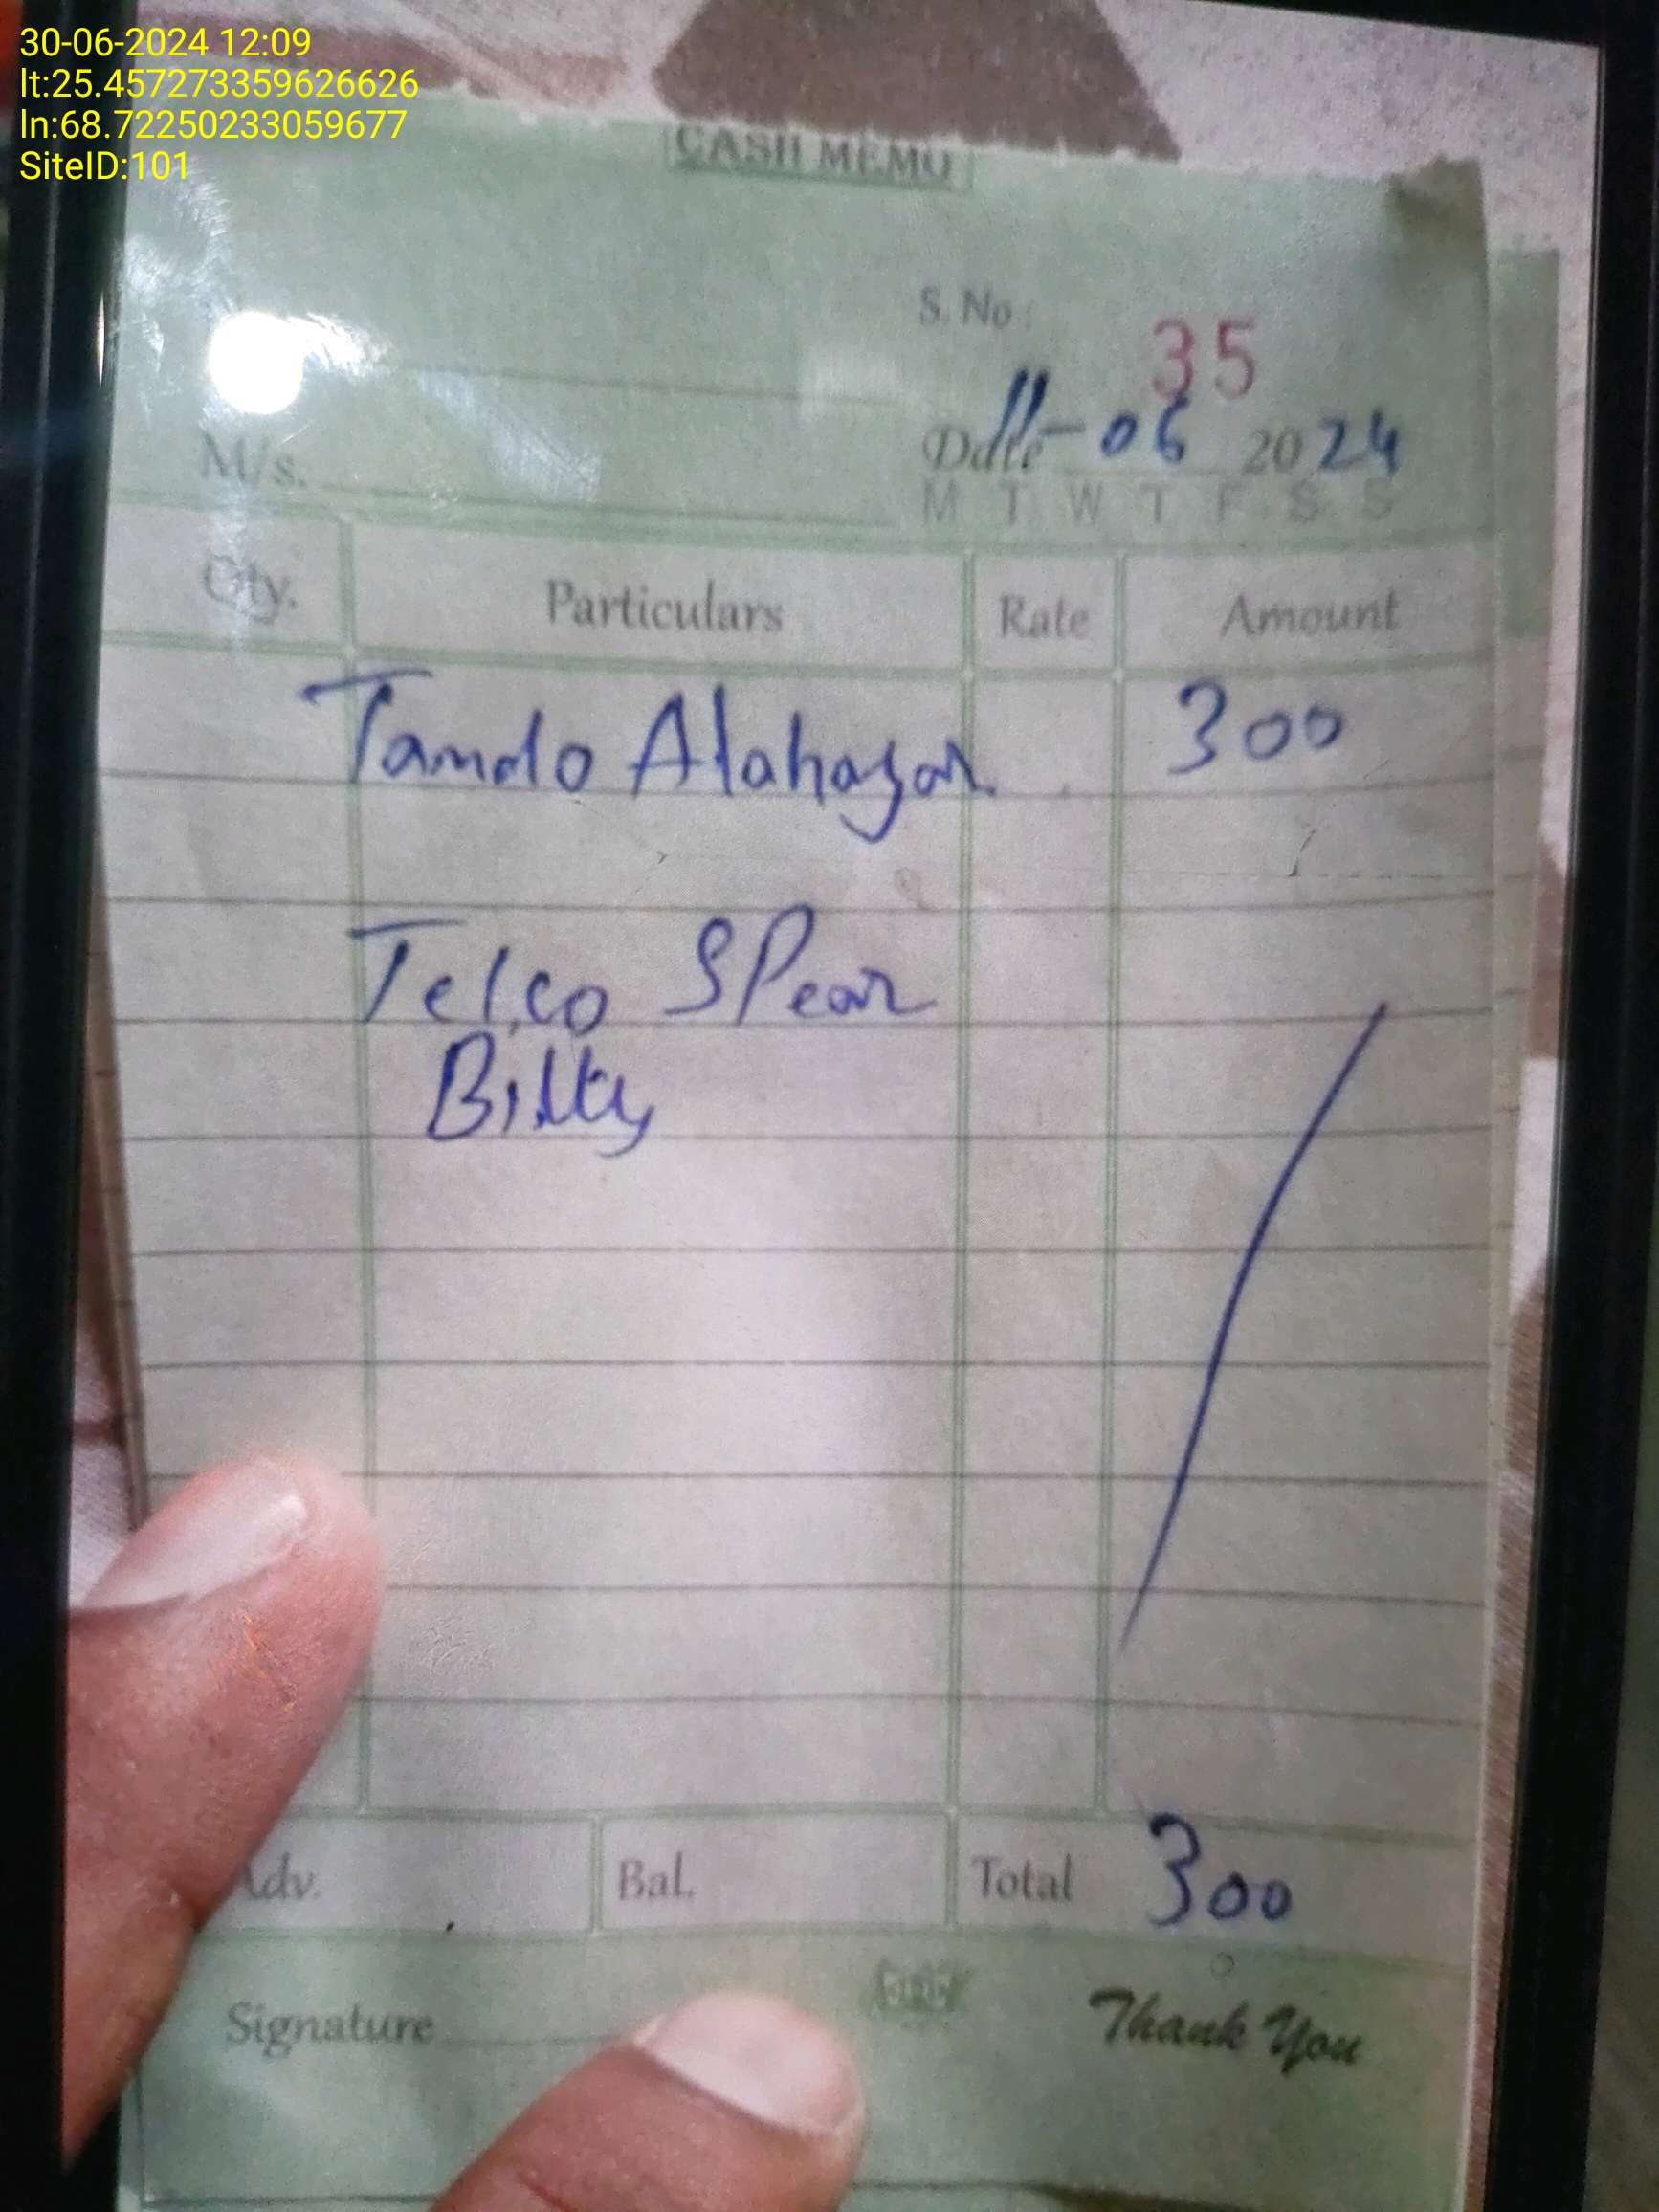 30-06-2024 12:09
lt:25.457273359626626
ln:68.72250233059677
SiteID:101
CASH MEMO
S. No : 35
M/s. Date 11-06 2024
M T W T F S S
Qty. Particulars Rate Amount
Tando Alahayar 300
Telco SPear
Bilty
Adv. Bal. Total 300
Signature Thank You